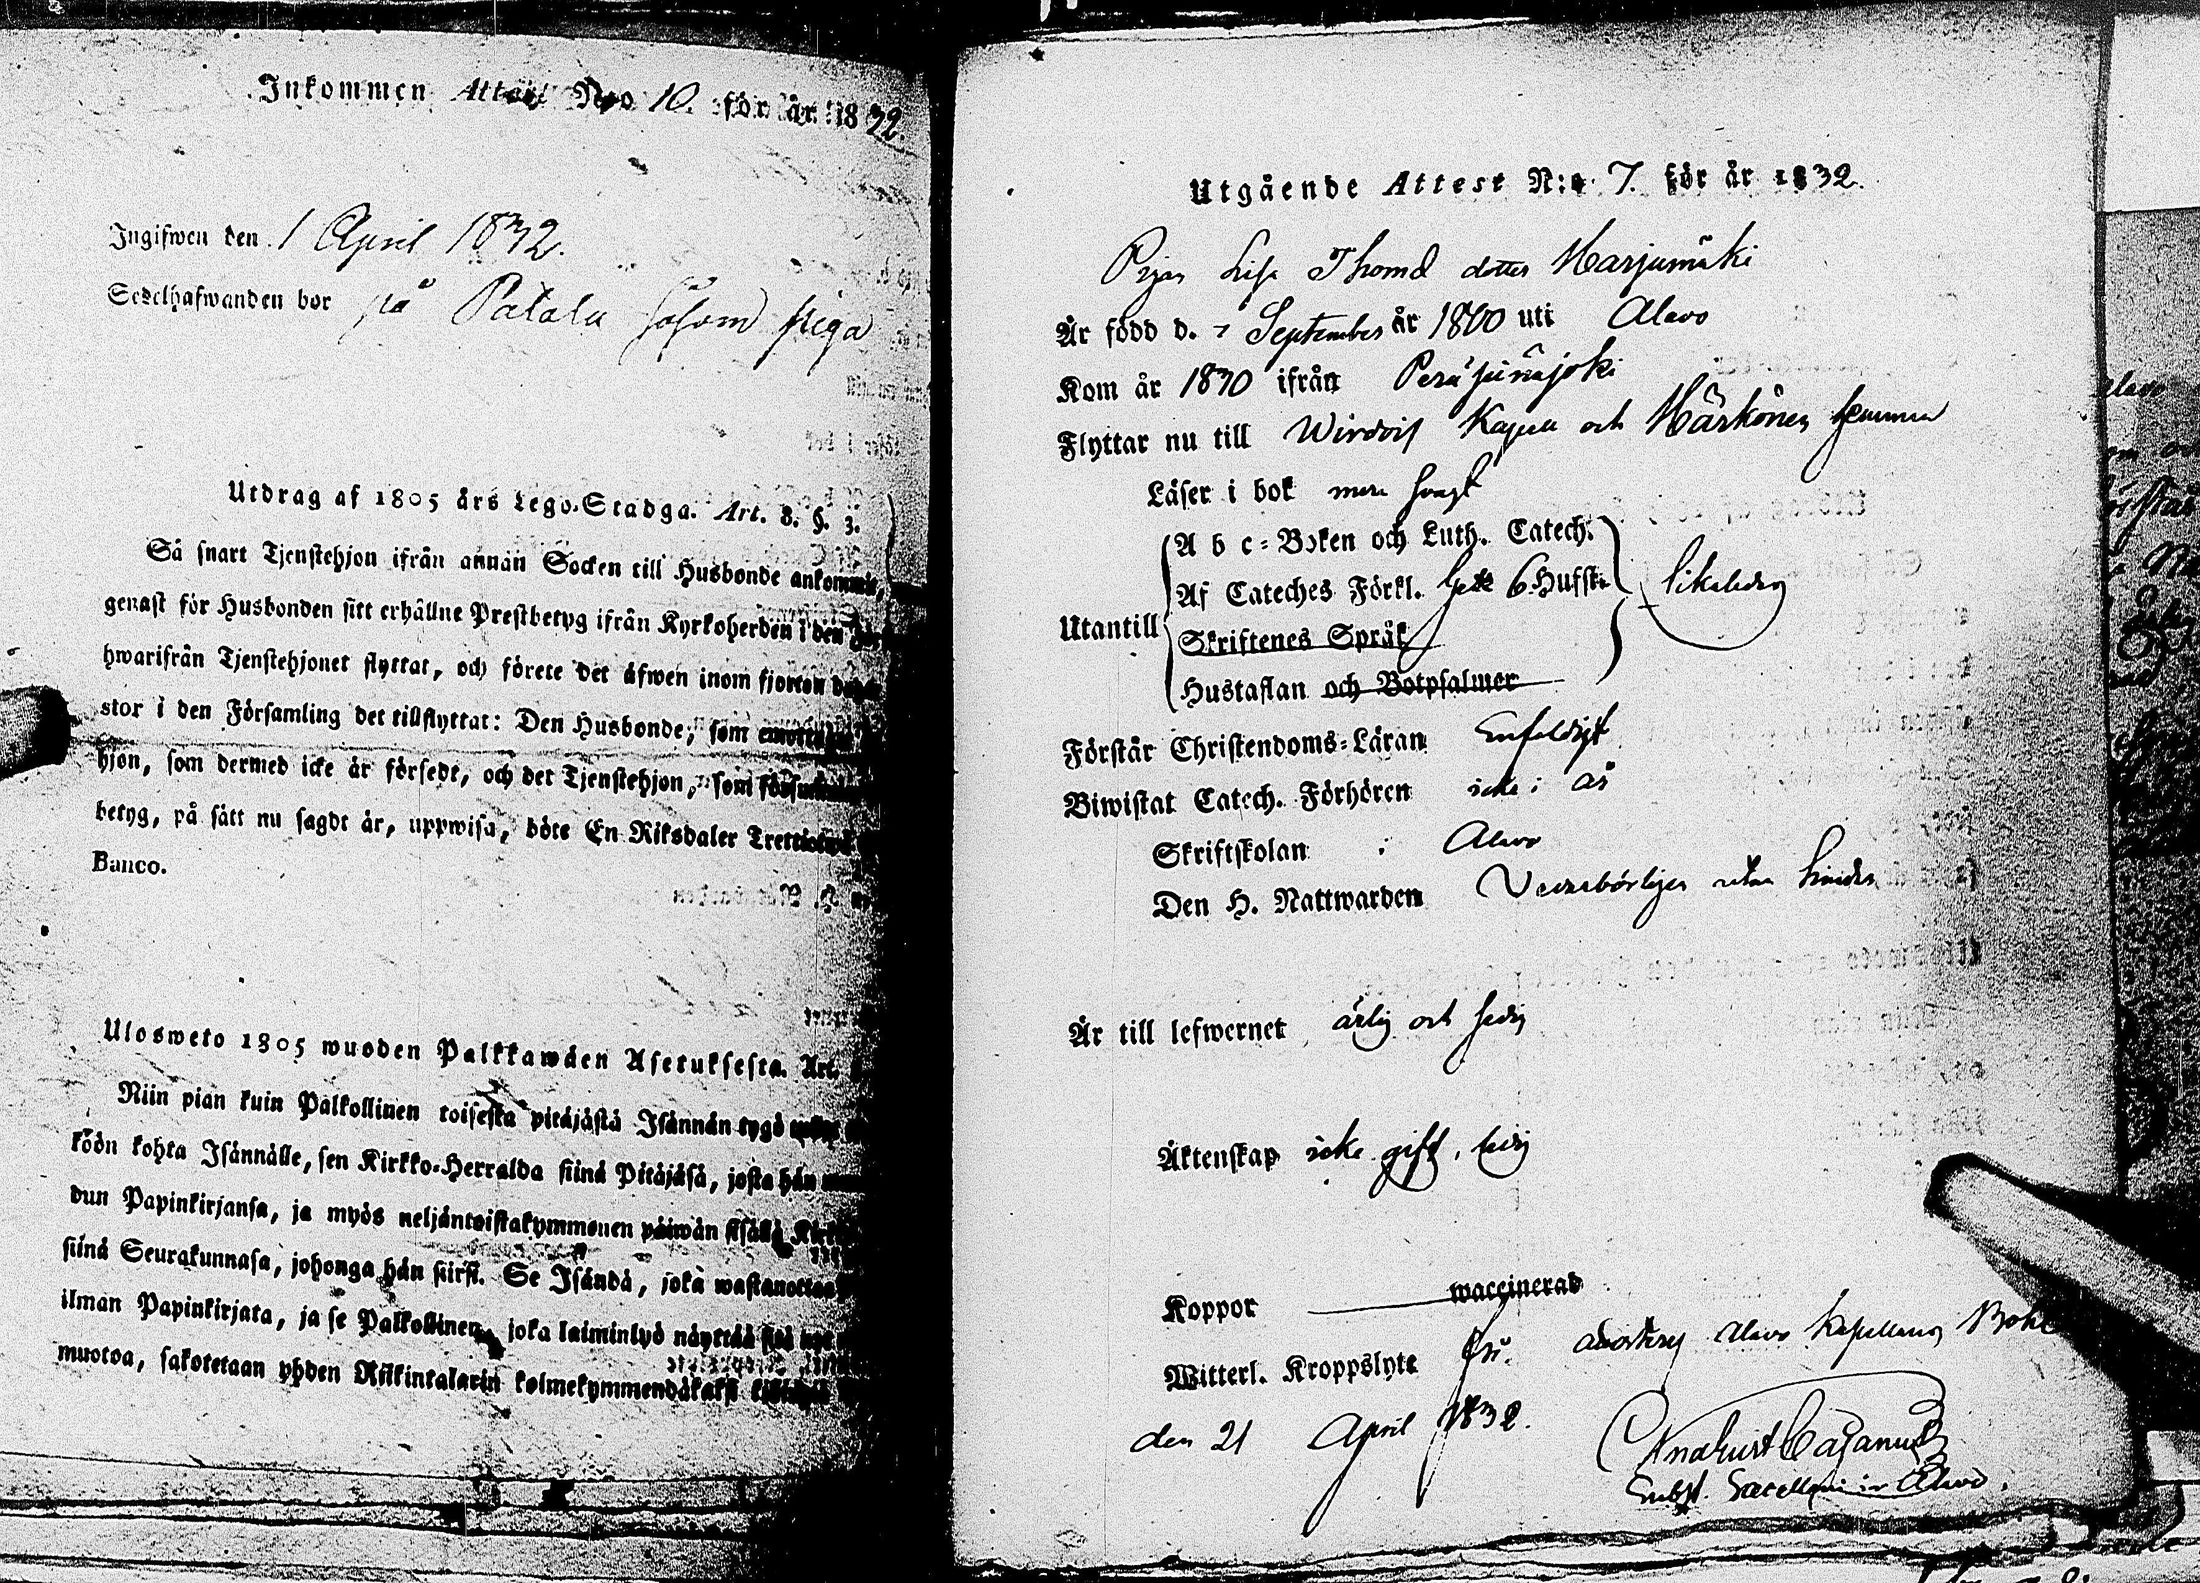 Inkommen Attest N:o 10. för år 1832.
Ingifwen den 1 April 1832.
Sedelhafwanden bor på Patala såsom piga
Utdrag af 1805 års Lego-Stadga. Art. 8. §. 3.
Så snart Tjenstehjon ifrån annan Socken till Husbonde ankommit,
genast för Husbonden sitt erhållne Prestbetyg ifrån Kyrkoherden i den
hwarifrån Tjenstehjonet flyttat, och förete det äfwen inom fjorton
stor i den Församling det tillflyttat: Den Husbonde, som
hjon, som dermed icke är försedt, och det Tjenstehjon, som
betyg, på sätt nu sagdt är, uppwisa, böte En Riksdaler
Banco.
Ulosweto 1805 wuoden Palkkawäen Asetuksesta. Art.
Niin pian kuin Palkollinen toisesta pitäjästä Isännän tygö
köön kohta Isännälle, sen Kirkko-Herralda siinä Pitäjäsä, josta hän
dun Papinkirjansa, ja myös neljäntoistakymmenen päiwän sisällä
siinä Seurakunnasa, johonga hän siirsi. Se Isändä, joka wastanottaa
ilman Papinkirjata, ja se Palkollinen, joka laiminlyö näyttää sitä
muotoa, sakotetaan yhden Riikintalarin kolmekymmendäkaksi
Utgående Attest N:o 7. för år 1832.
Pigan Lisa Thomæ dotter Marjumäki
Är född d. 7 September år 1800 uti Alavo
Kom år 1830 ifrån Peräseinäjoki
Flyttar nu till Wirdois Kapell och Härkönen hemman
Läser i bok mera svagt
A b c-Boken och Luth. Catech.
Af Cateches Förkl. 6 Hufst.
likaledes
Utantill
Skriftenes Språk
Hustaflan och Botpsalmer
Förstår Christendoms-Läran Enfaldigt
Biwistat Catech. Förhören icke i år
Skriftskolan i Alavo
Den H. Nattwarden Vederbörligen utan hinder
Är till lefwernet ärlig och sedig
Äktenskap icke gift, ledig
Koppor waccinerad
Witterl. Kroppslyte fri. Alavo Kapellans Bohl
den 21 April 1832.
Cajanus
Subst. Sacellani in Alavo.